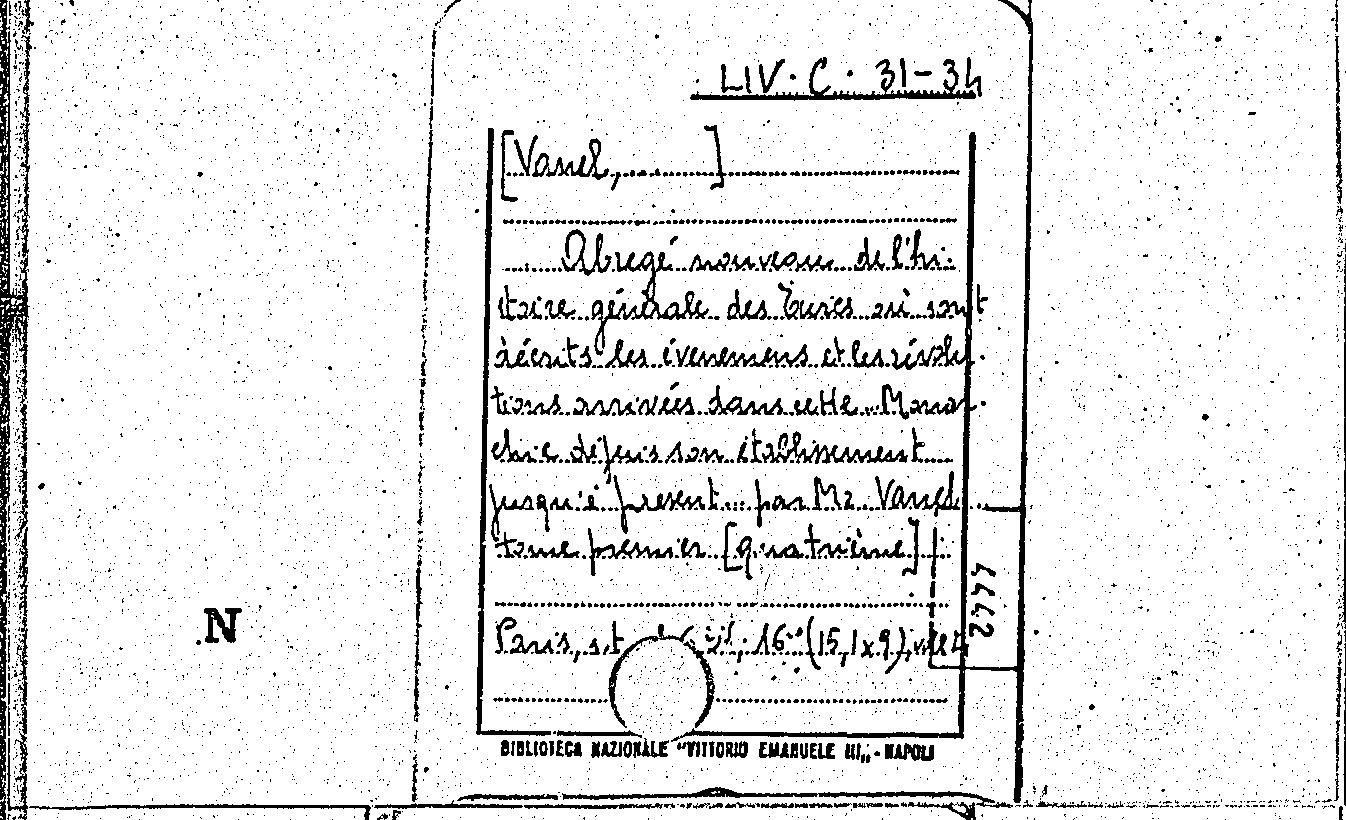 LIV. C. 31-34
[Vanel, ..... ]
Abregé nouveau de l'hi-
stoire générale des Turcs où sont
décrits les évenemens et les révolu-
tions arrivées dans cette Monar-
chie depuis son établissement
jusqu'é present... par Mr. Vanel
tome premier [quatrième]
N
Paris, s.t. 16° (15,1x9), vol. 4
2777
BIBLIOTECA NAZIONALE "VITTORIO EMANUELE III„ - NAPOLI